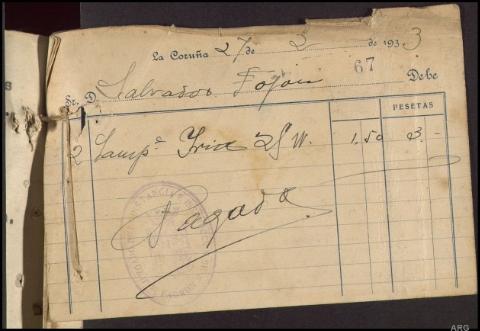 La Coruña 27 de 2 de 1933
67
Sr. D. Salvador Fojón Debe
PESETAS
2 Lamp.s Iria 25 W. 1.50 3.-
Pagado
ARG